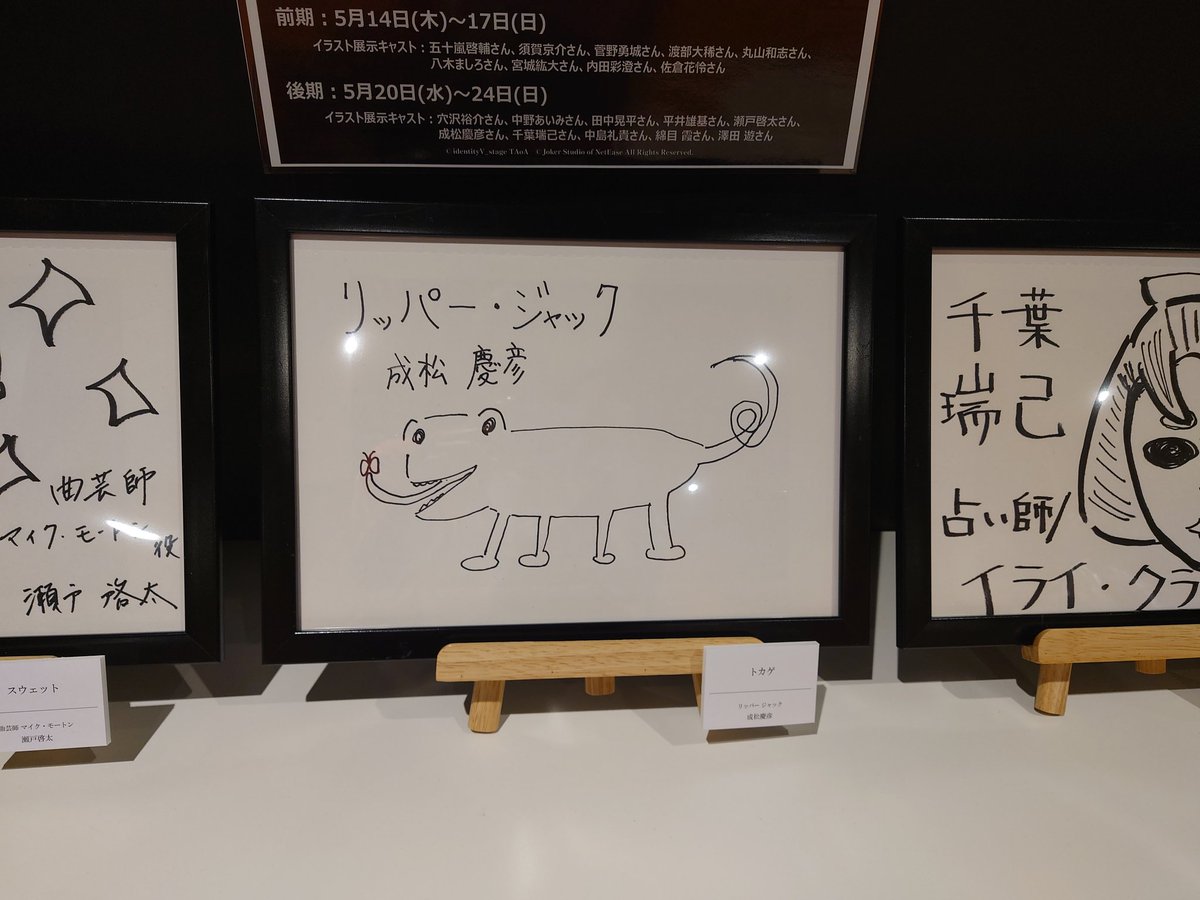 前期：5月14日(木)～17日(日)
イラスト展示キャスト：五十嵐啓輔さん、須賀京介さん、菅野勇城さん、渡部大稀さん、丸山和志さん、
八木ましろさん、宮城紘大さん、内田彩澄さん、佐倉花怜さん
後期：5月20日(水)～24日(日)
イラスト展示キャスト：穴沢裕介さん、中野あいみさん、田中晃平さん、平井雄基さん、瀬戸啓太さん、
成松慶彦さん、千葉瑞己さん、中島礼貴さん、綿目 霞さん、澤田 遊さん
©IdentityV_stage TAoA ©Joker Studio of NetEase All Rights Reserved.
曲芸師
マイク・モートン役
瀬戸 啓太
リッパー・ジャック
成松 慶彦
千葉
瑞己
占い師/
イライ・クラ
スウェット
曲芸師 マイク・モートン
瀬戸啓太
トカゲ
リッパー ジャック
成松慶彦